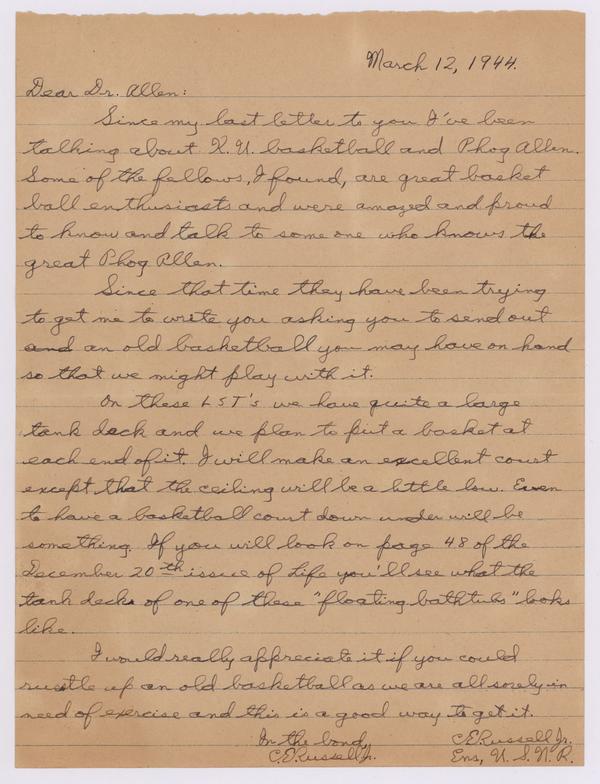 March 12, 1944.
Dear Dr. Allen:
Since my last letter to you I've been
talking about K.U. basketball and Phog Allen.
Some of the fellows, I found, are great basket
ball enthusiasts and were amazed and proud
to know and talk to some one who knows the
great Phog Allen.
Since that time they have been trying
to get me to write you asking you to send out
and an old basketball you may have on hand
so that we might play with it.
On these LST's we have quite a large
tank deck and we plan to put a basket at
each end of it. I will make an excellent court
except that the ceiling will be a little low. Even
to have a basketball court down under will be
something. If you will look on page 48 of the
December 20th issue of Life you'll see what the
tank decks of one of these "floating bathtubs" looks
like.
I would really appreciate it if you could
rustle up an old basketball as we are all sorely in
need of exercise and this is a good way to get it.
In the bond, C.E. Russell Jr.
C.E. Russell Jr. Ens, U.S.N.R.